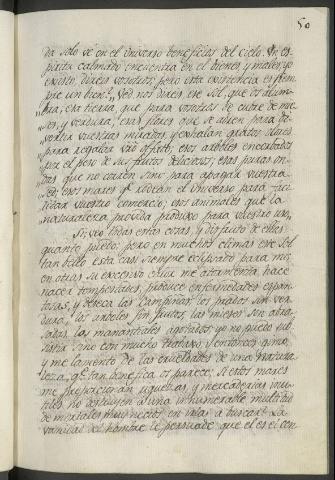 50
da solo vé en el Universo beneficios del cielo. Un es-
píritu calmado encuentra en el bienes, y males; yo
existo, direis vosotros; pero esta existencia es siem-
pre un bien? "Ved, nos direis, ese Sol, que os alum-
"bra, esa tierra, que para vosotros se cubre de mie-
"ses, y verdura, esas flores que se abren para
"vuestras miradas, y exhalan gratos olores
"para regalar vro olfato; esos arboles encorbados
"por el peso de sus frutos deliciosos; esas puras on-
"das que no corren sino para apagar vuestra
"sed; esos mares q.e rodean el Universo para faci-
"litar vuestro comercio; esos animales que la
"naturaleza provida produxo para vuestro uso,
Si; veo todas estas cosas, y disfruto de ellas
quanto puedo; pero en muchos climas este Sol
tan bello está casi siempre eclipsado para mi;
en otros su excesivo calor me atormenta, hace
nacer tempestades, produce enfermedades espan-
tosas, y deseca las campiñas; los prados sin ver-
dura, los arboles sin frutos, las mieses sin
los manantiales agotados, yo no puedo sub-
sistir sino con mucho trabajo, y entonces gimo,
y me lamento de las crueldades de una natura-
leza, q.e tan benefica os parece. Si estos mares
me proporcionan riquezas, y mercaderias inu-
tiles no destruyen á una innumerable multitud
de mortales muy necios en irlas á buscar? La
vanidad del hombre le persuade que el es el cen-